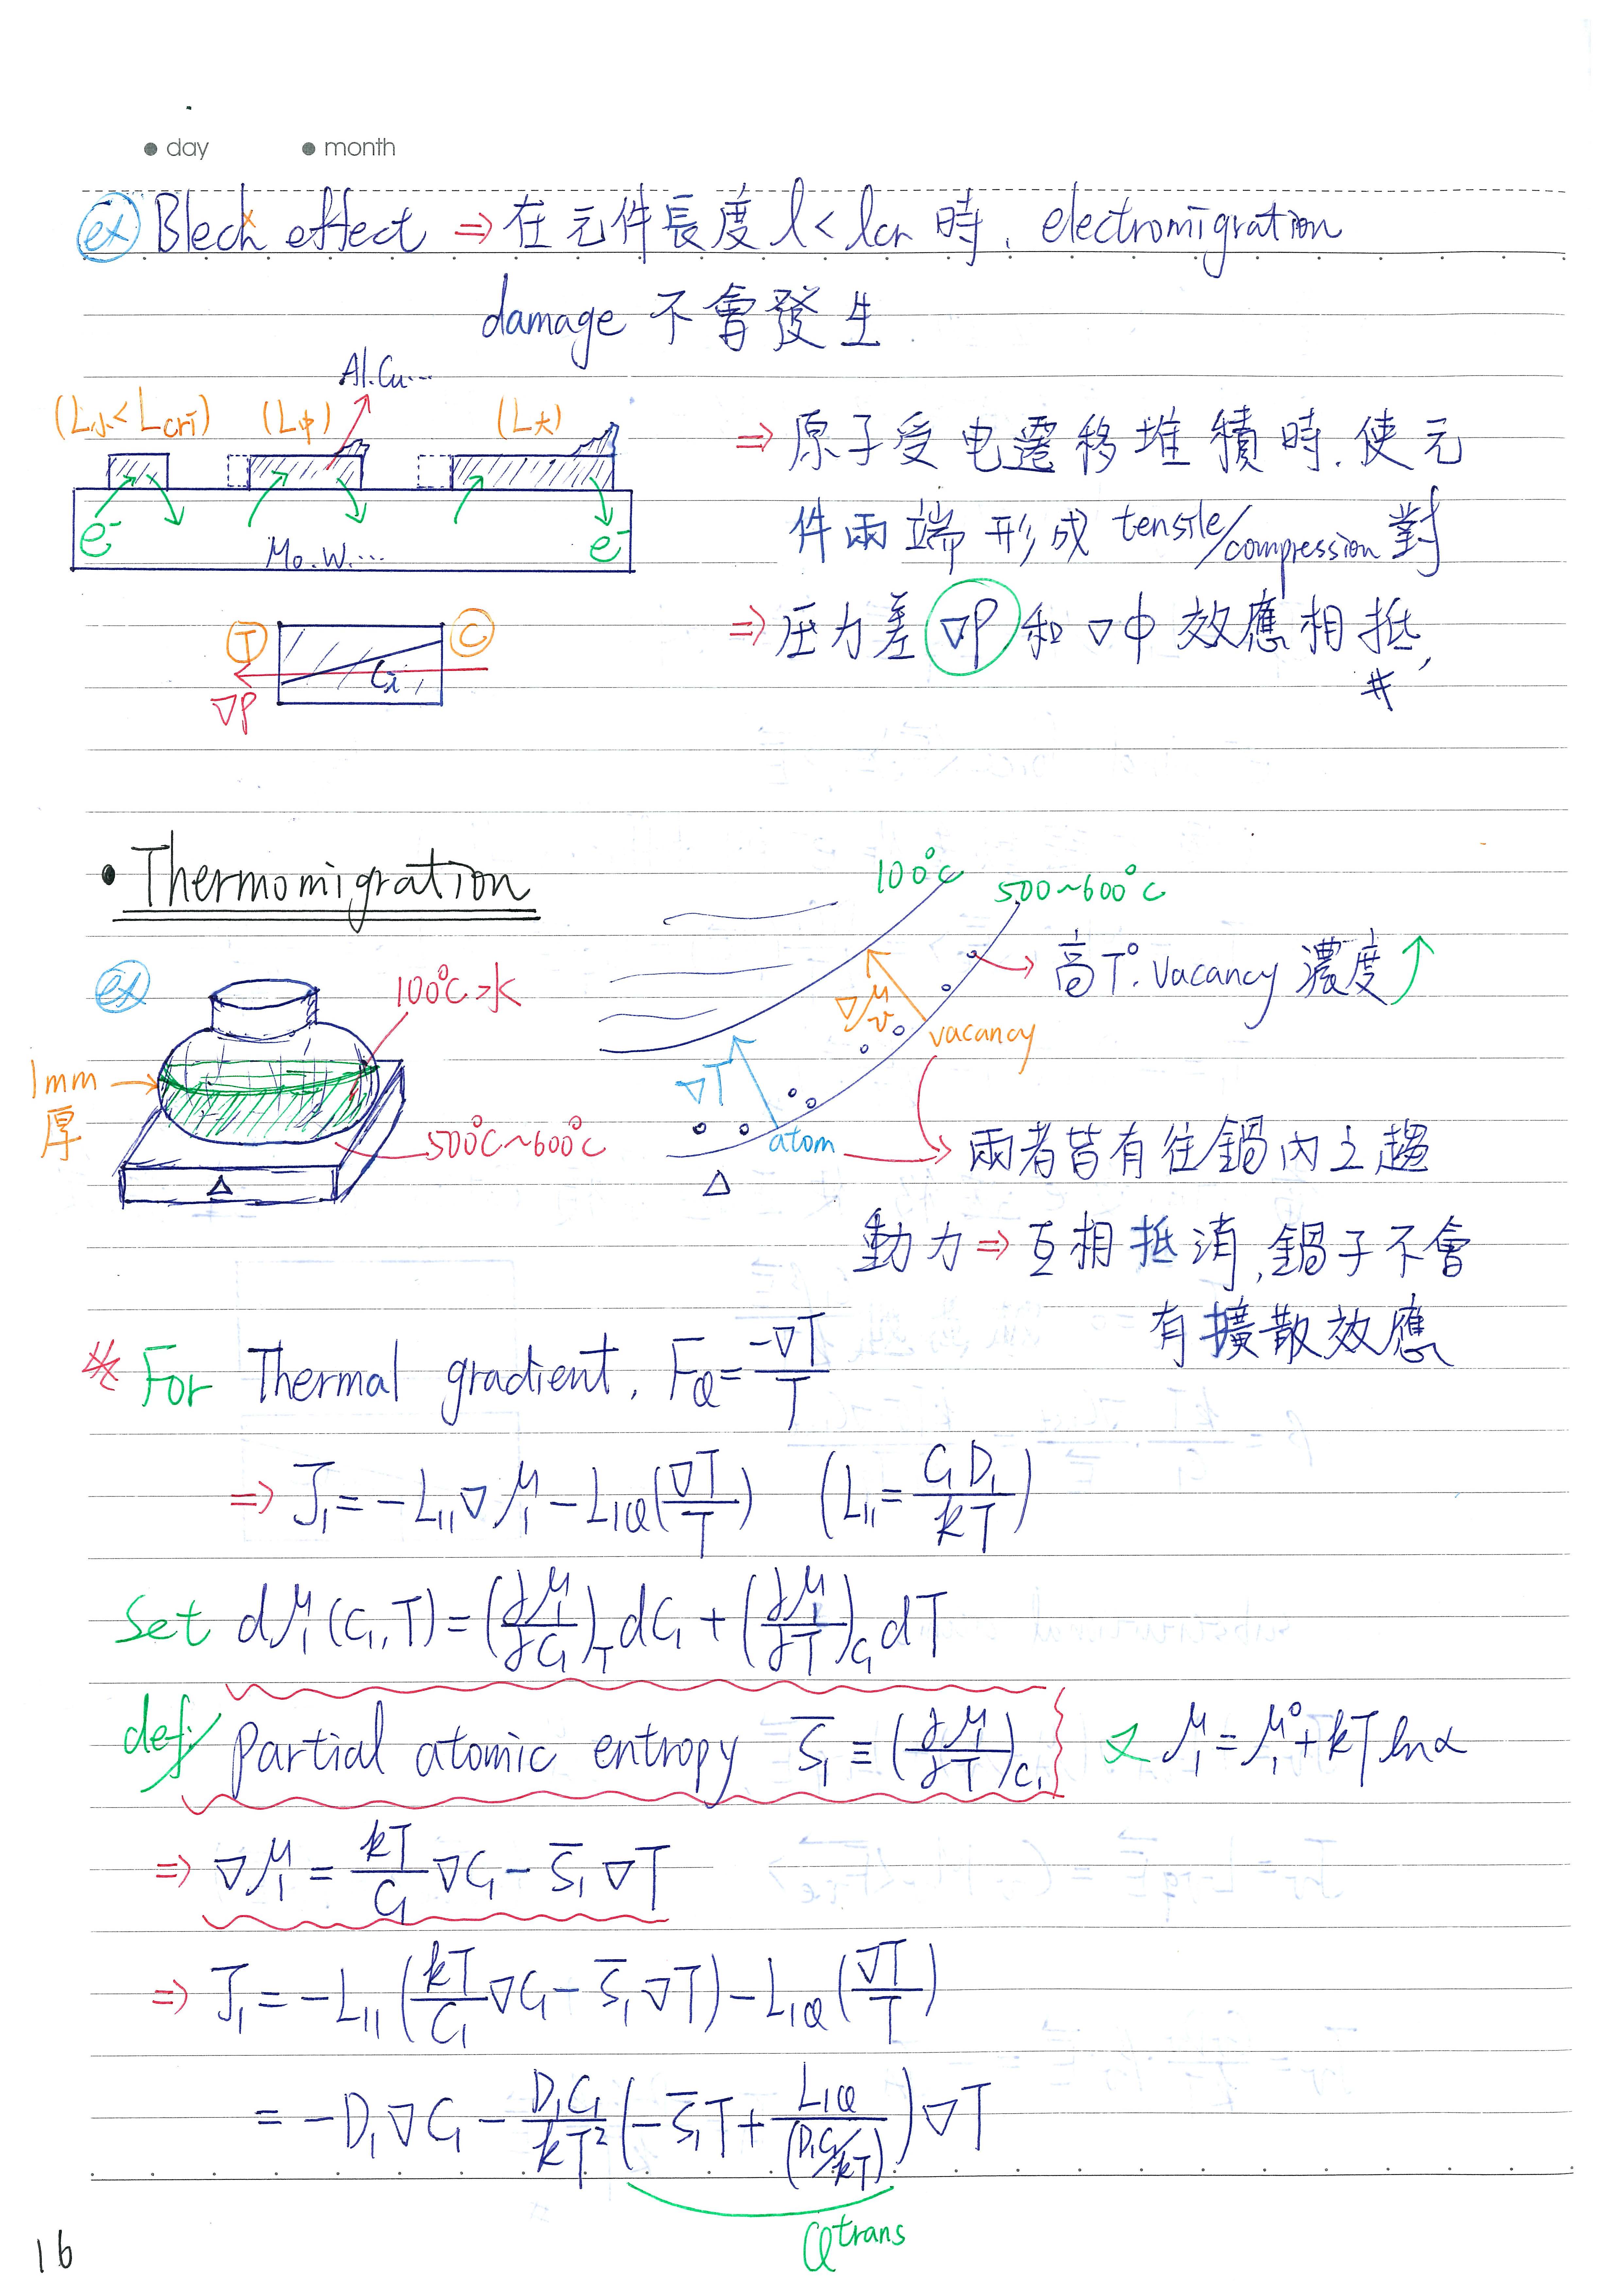 day month
ex Blech effect ⇒ 在元件長度 l < lcr 時, electromigration
damage 不會發生
Al.Cu...
(L小<Lcri) (L中) (L大)
e⁻ Mo.W.... e⁻
⇒ 原子受电遷移堆積時.使元
件兩端形成 tensile/compression 對
⇒ 压力差 ∇P 和 ∇φ 效應相抵,
#
T C
∇P
• Thermomigration
100°C 500~600°C
ex
100°C 水
1mm
厚
500°C~600°C
∇μv
vacancy
∇T
atom
高T°. Vacancy 濃度↑
兩者皆有往鍋內之趨
動力 ⇒ 互相抵消, 鍋子不會
有擴散效應
For Thermal gradient, F_Q = -∇T/T
⇒ J₁ = -L₁₁∇μ₁ - L₁Q(∇T/T) (L₁₁ = C₁D₁/kT)
Set dμ₁(C₁,T) = (∂μ₁/∂C₁)_T dC₁ + (∂μ₁/∂T)_C₁ dT
def: Partial atomic entropy S̄₁ ≡ (∂μ₁/∂T)_C₁ 又 μ₁ = μ₁° + kT lnα
⇒ ∇μ₁ = kT/C₁ ∇C₁ - S̄₁∇T
⇒ J₁ = -L₁₁(kT/C₁ ∇C₁ - S̄₁∇T) - L₁Q(∇T/T)
= -D₁∇C₁ - D₁C₁/kT² (-S̄₁T + L₁Q/(D₁C₁/kT))∇T
Q^trans
16